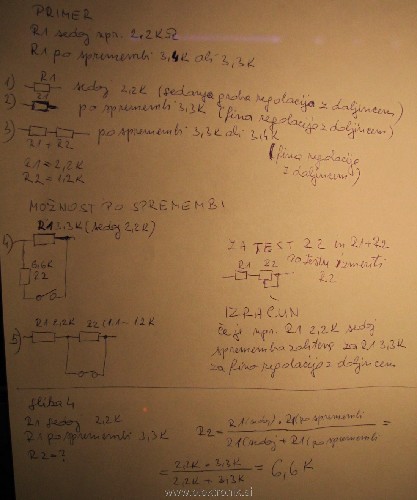 PRIMER
R1 sedaj npr. 2,2KΩ
R1 po spremembi 3,4K ali 3,3K
1) R1 sedaj 2,2K (sedanja groba regulacija z daljincem)
2) R2 po spremembi 3,3K (fina regulacija z daljincem)
3) po spremembi 3,3K ali 3,4K
R1 + R2
(fina regulacija
z daljincem)
R1 = 2,2K
R2 = 1,2K
MOŽNOST PO SPREMEMBI
4) R1 3,3K (sedaj 2,2K)
6,6K
R2
ZA TEST R2 in R1+R2
R1 R2
R2
5) R1 2,2K R2 (1,1 - 1,2K
IZRAČUN
če je npr. R1 2,2K sedaj
sprememba zahteva za R1 3,3K
za fino regulacijo z daljincem
slika 4
R1 sedaj 2,2K
R1 po spremembi 3,3K
R2 = ?
R2 = R1(sedaj) . R1(po spremembi) =
R1(sedaj + R1(po spremembi
= 2,2K . 3,3K = 6,6K
2,2K + 3,3K